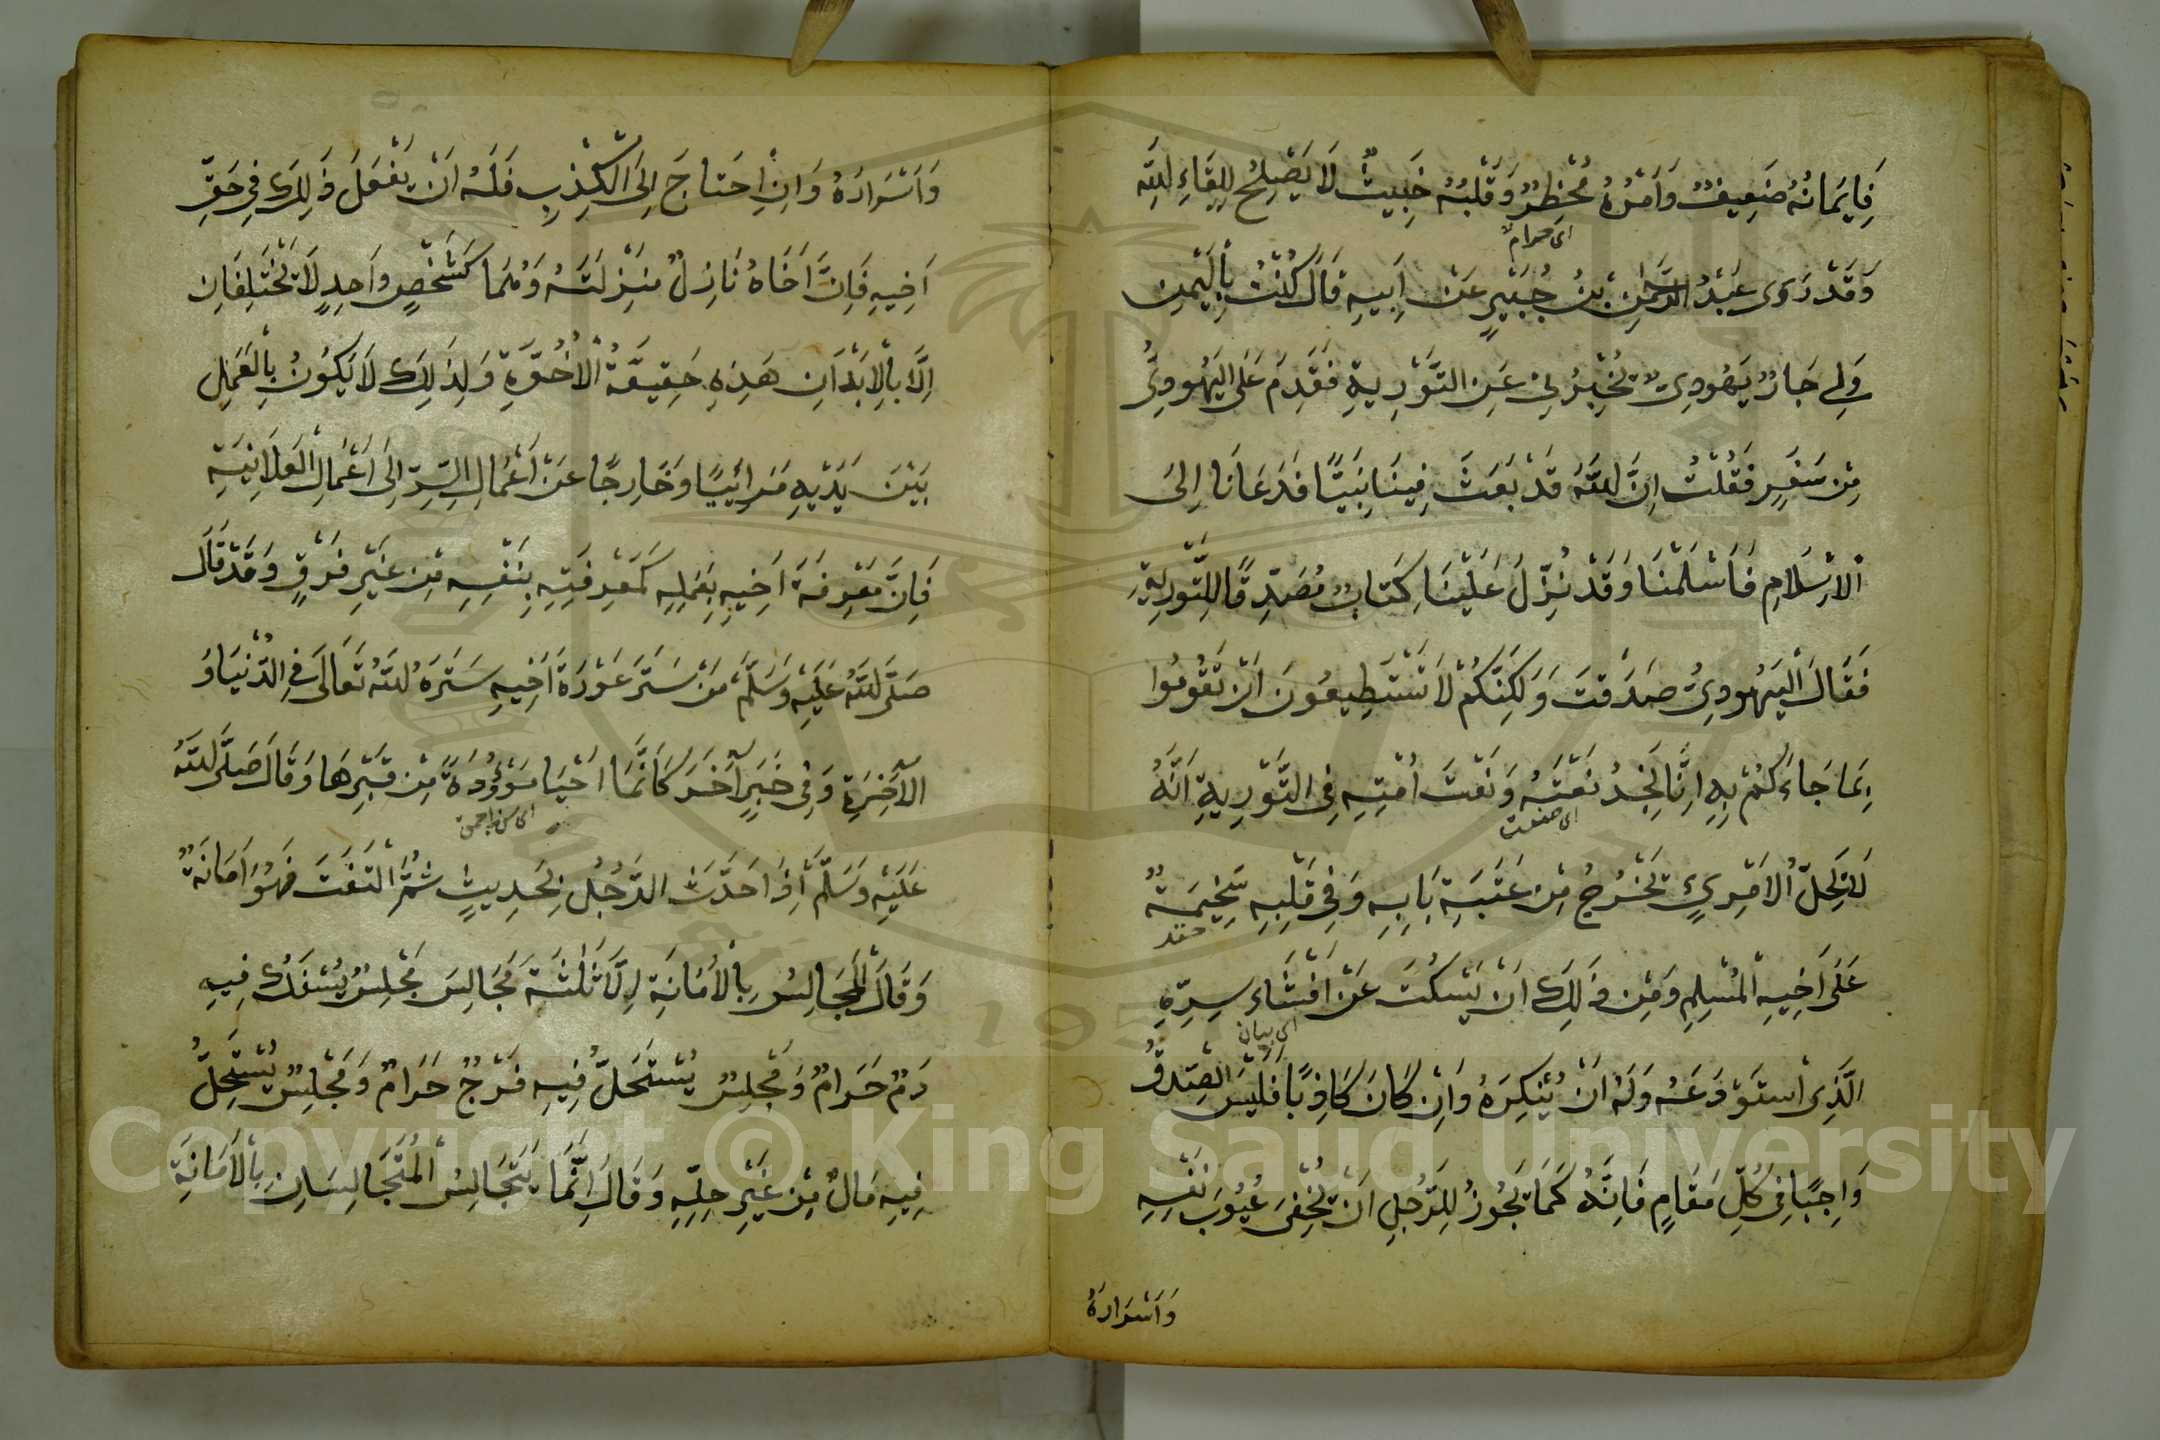 فَإِيمَانُهُ ضَعِيفٌ وَأَمْرُهُ مُخْطِرٌ وَقَلْبُهُ خَبِيثٌ لَا يَصْلِحُ لِلِقَاءِ اللَّهِ
اى حرام
وَقَدْ رَوَى عَبْدُ الرَّحْمٰنِ بْنُ جُبَيْرٍ عَنْ أَبِيهِ قَالَ كُنْتُ بِالْيَمِنِ
وَلِى جَارٌ يَهُودِىٌّ يُخْبِرُنِى عَنِ التَّوْرِيةِ فَقَدِمَ عَلَى الْيَهُودِىُّ
مِنْ سَفَرٍ فَقُلْتُ اِنَّ اللَّهَ قَدْ بَعَثَ فِينَا نَبِيًّا فَدَعَانَا اِلىَ
الْاِسْلَامِ فَاَسْلَمْنَا وَقَدْ نُزِّلَ عَلَيْنَا كِتَابٌ مُصَدِّقًا لِلتَّوْرِيةِ
فَقَالَ الْيَهُودِىُّ صَدَقْتَ وَلَكِنَّكُمْ لَا تَسْتَطِيعُونَ اَنْ تَقُومُوا
بِمَا جَاءَكُمْ بِهِ اِنَّا نَجِدُ نَعْتَهُ وَنَعْتَ اُمَّتِهِ فِى التَّوْرِيةِ اَنَّهُ
اى صفت
لَا يَحِلُّ لِاِمْرِئٍ يَخْرُجُ مِنْ عَتَبَةِ بَابِهِ وَفِى قَلْبِهِ سَخِيمَةٌ
حقد
عَلَى اَخِيهِ الْمُسْلِمِ وَمِنْ ذَلِكَ اَنْ يَسْكُتَ عَنْ اَفْشَاءِ سِرِّهِ
اى بيان
الَّذِى اسْتَوْدَعَهُ وَلَهُ اَنْ يُنْكِرَهُ وَاِنْ كَانَ كَاذِبًا فَلَيْسَ الصِّدْقُ
وَاجِبًا فِى كُلِّ مَقَامٍ فَاِنَّهُ كَمَا يَجُوزُ لِلرَّجُلِ اَنْ يُخْفِىَ عُيُوبَ نَفْسِهِ
وَاَسْرَارَهُ
وَاَسْرَارَهُ وَاِنِ احْتَاجَ اِلَى الْكِذِبِ فَلَهُ اَنْ يَفْعَلَ ذَلِكَ فِى حَقِّ
اَخِيهِ فَاِنَّ اَخَاهُ نَازِلٌ مَنْزِلَتَهُ وَهُمَا كَشَخْصٍ وَاحِدٍ لَا يَخْتَلِفَانِ
اِلَّا بِالْاَبْدَانِ هَذِهِ حَقِيقَةُ الْاُخُوَّةِ وَلِذَلِكَ لَا يَكُونُ بِالْعَمَلِ
بَيْنَ يَدَيْهِ مَرَائِيًا وَخَارِجًا عَنْ اَعْمَالِ السِّرِّ اِلَى اَعْمَالِ الْعَلَانِيَةِ
فَاِنَّ مَعْرِفَةَ اَخِيهِ بِعَمَلِهِ كَمَعْرِفَتِهِ بِنَفْسِهِ مِنْ غَيْرِ فَرْقٍ وَقَدْ قَالَ
صَلَّى اللَّهُ عَلَيْهِ وَسَلَّمَ مَنْ سَتَرَ عَوْرَةَ اَخِيهِ سَتَرَهُ اللَّهُ تَعَالَى فِى الدُّنْيَا وَ
الْآخِرَةِ وَفِى خَبَرٍ آخَرَ كَاَنَّمَا اَحْيَا مَوْؤُدَةً مِنْ قَبْرِهَا وَقَالَ صَلَّى اللَّهُ
عَلَيْهِ وَسَلَّمَ اِذَا حَدَّثَ الرَّجُلُ بِحَدِيثٍ ثُمَّ الْتَفَتَ فَهُوَ اَمَانَةٌ
وَقَالَ الْمَجَالِسُ بِالْاَمَانَةِ اِلَّا ثَلٰثَةَ مَجَالِسَ مَجْلِسٌ يُسْفَكُ فِيهِ
دَمٌ حَرَامٌ وَمَجْلِسٌ يُسْتَحَلُّ فِيهِ فَرْجٌ حَرَامٌ وَمَجْلِسٌ يُسْتَحِلُّ
فِيهِ مَالٌ مِنْ غَيْرِ حِلِّهِ وَقَالَ اِنَّمَا يَتَجَالِسُ الْمُتَجَالِسَانِ بِالْاَمَانَةِ
Copyright © King Saud University